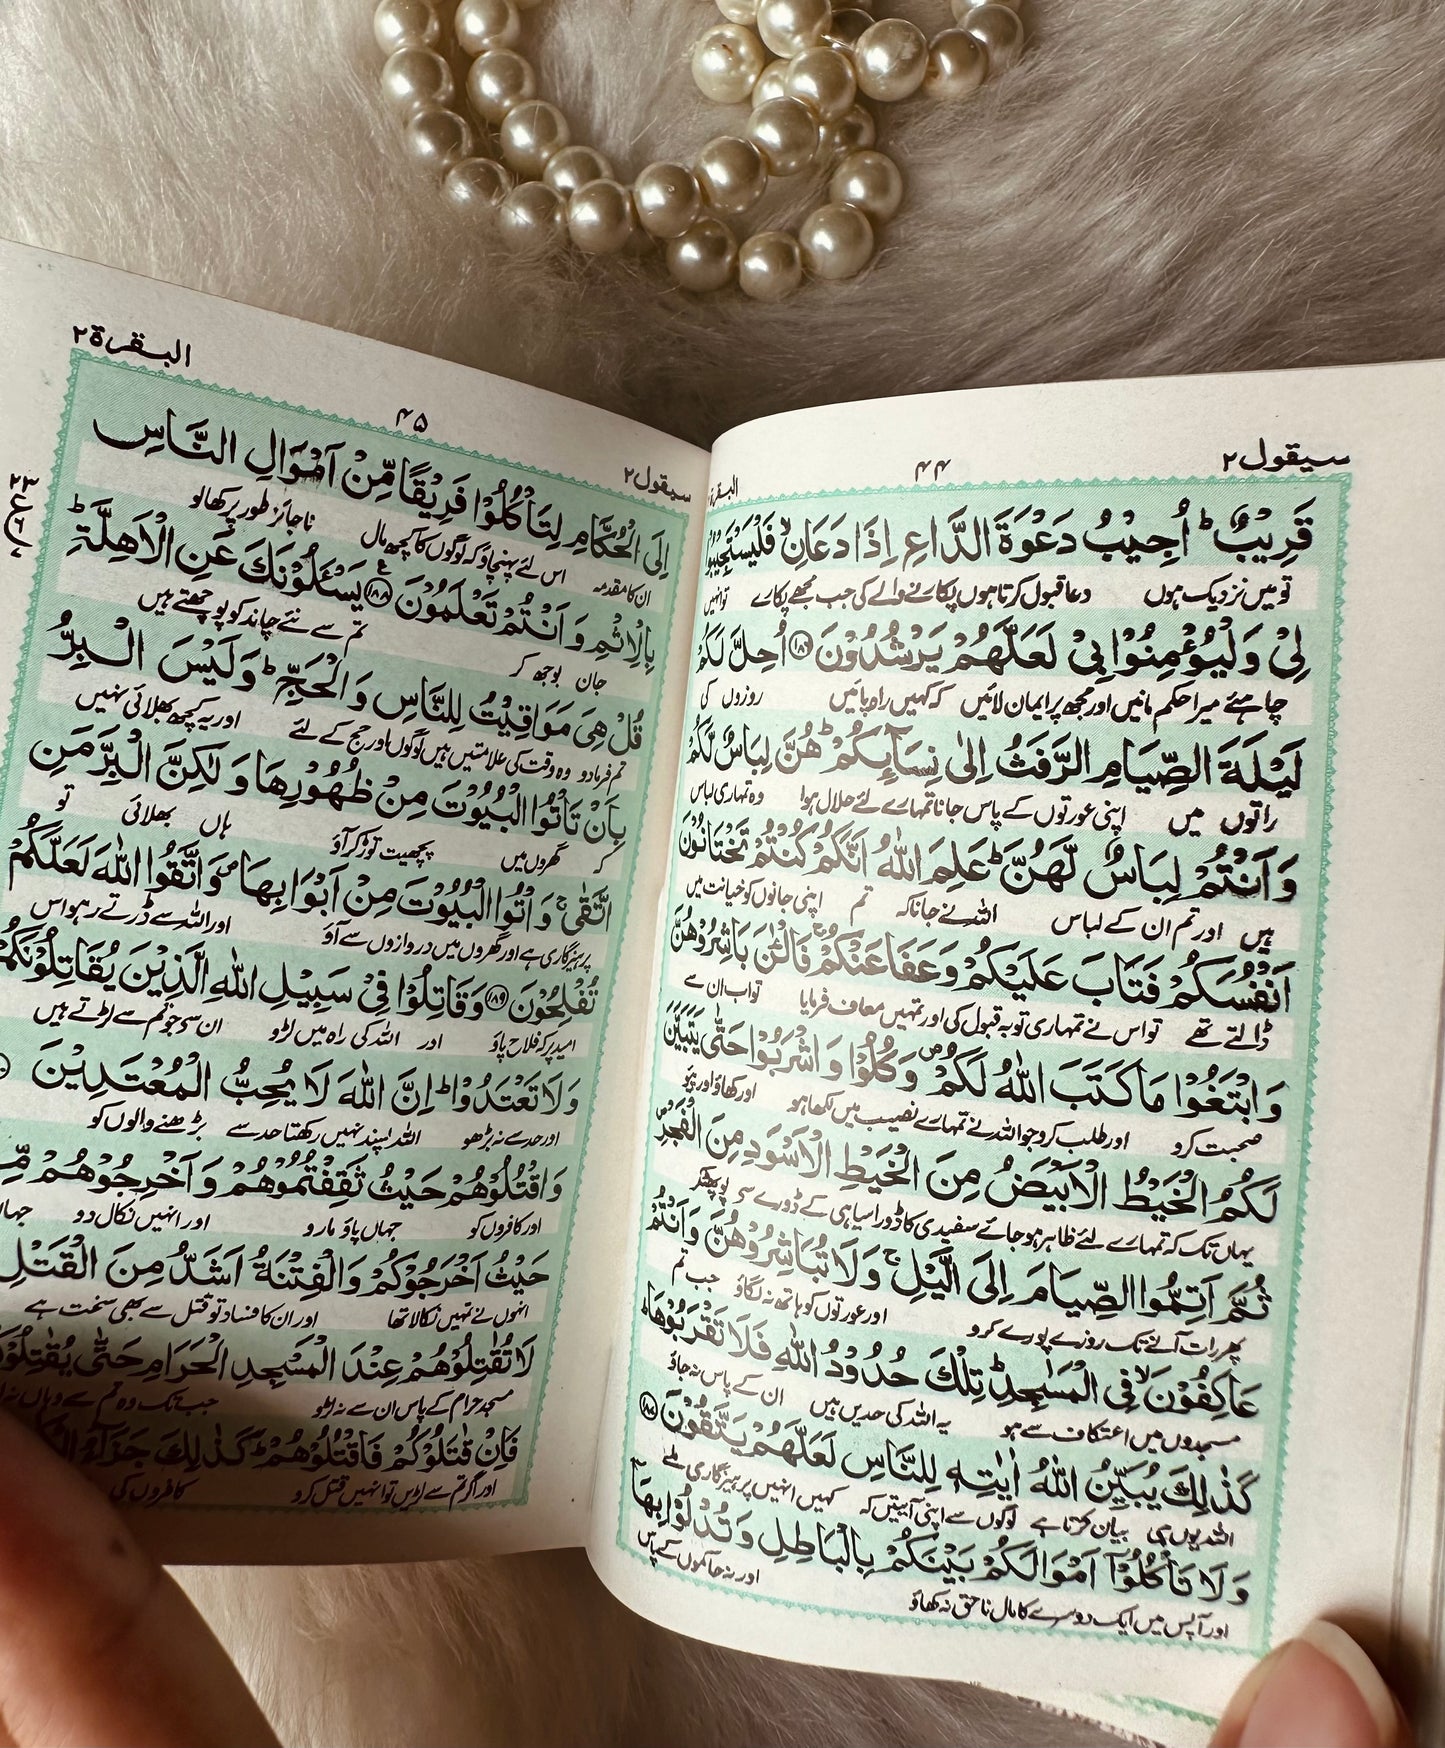 سیقول۲
۴۴
البقرة۲
قَرِيْبٌ ؕ اُجِيْبُ دَعْوَةَ الدَّاعِ اِذَا دَعَانِ ۙ فَلْيَسْتَجِيْبُوْا
تو میں نزدیک ہوں دعا قبول کرتا ہوں پکارنے والے کی جب مجھے پکارے تو انہیں
لِيْ وَلْيُؤْمِنُوْا بِيْ لَعَلَّهُمْ يَرْشُدُوْنَ ۝۱۸۶ اُحِلَّ لَكُمْ
چاہئے میرا حکم مانیں اور مجھ پر ایمان لائیں کہ کہیں راہ پائیں روزوں کی
لَيْلَةَ الصِّيَامِ الرَّفَثُ اِلٰى نِسَآىِٕكُمْ ؕ هُنَّ لِبَاسٌ لَّكُمْ
راتوں میں اپنی عورتوں کے پاس جانا تمہارے لئے حلال ہوا وہ تمہاری لباس
وَاَنْتُمْ لِبَاسٌ لَّهُنَّ ؕ عَلِمَ اللّٰهُ اَنَّكُمْ كُنْتُمْ تَخْتَانُوْنَ
ہیں اور تم ان کے لباس اللہ نے جانا کہ تم اپنی جانوں کو خیانت میں
اَنْفُسَكُمْ فَتَابَ عَلَيْكُمْ وَعَفَا عَنْكُمْ ۚ فَالْـٰٔنَ بَاشِرُوْهُنَّ
ڈالتے تھے تو اس نے تمہاری توبہ قبول کی اور تمہیں معاف فرمایا تو اب ان سے
وَابْتَغُوْا مَا كَتَبَ اللّٰهُ لَكُمْ ۪ وَكُلُوْا وَاشْرَبُوْا حَتّٰى يَتَبَيَّنَ
صحبت کرو اور طلب کرو جو اللہ نے تمہارے نصیب میں لکھا ہو اور کھاؤ اور پیؤ
لَكُمُ الْخَيْطُ الْاَبْيَضُ مِنَ الْخَيْطِ الْاَسْوَدِ مِنَ الْفَجْرِ ۪
یہاں تک کہ تمہارے لئے ظاہر ہو جائے سفیدی کا ڈورا سیاہی کے ڈورے سے پو پھٹ کر
ثُمَّ اَتِمُّوا الصِّيَامَ اِلَى الَّيْلِ ۚ وَلَا تُبَاشِرُوْهُنَّ وَاَنْتُمْ
پھر رات آنے تک روزے پورے کرو اور عورتوں کو ہاتھ نہ لگاؤ جب تم
عَاكِفُوْنَ ۙ فِي الْمَسٰجِدِ ؕ تِلْكَ حُدُوْدُ اللّٰهِ فَلَا تَقْرَبُوْهَا ؕ
مسجدوں میں اعتکاف سے ہو یہ اللہ کی حدیں ہیں ان کے پاس نہ جاؤ
كَذٰلِكَ يُبَيِّنُ اللّٰهُ اٰيٰتِهٖ لِلنَّاسِ لَعَلَّهُمْ يَتَّقُوْنَ ۝۱۸۷
اللہ یوں ہی بیان کرتا ہے لوگوں سے اپنی آیتیں کہ کہیں انہیں پرہیزگاری ملے
وَلَا تَاْكُلُوْٓا اَمْوَالَكُمْ بَيْنَكُمْ بِالْبَاطِلِ وَتُدْلُوْا بِهَآ
اور آپس میں ایک دوسرے کا مال ناحق نہ کھاؤ اور نہ حاکموں کے پاس
سیقول۲
۴۵
البقرة۲
اِلَى الْحُكَّامِ لِتَاْكُلُوْا فَرِيْقًا مِّنْ اَمْوَالِ النَّاسِ
ان کا مقدمہ اس لئے پہنچاؤ کہ لوگوں کا کچھ مال ناجائز طور پر کھالو
بِالْاِثْمِ وَاَنْتُمْ تَعْلَمُوْنَ ۝۱۸۸ يَسْـَٔلُوْنَكَ عَنِ الْاَهِلَّةِ ؕ
جان بوجھ کر تم سے نئے چاند کو پوچھتے ہیں
قُلْ هِيَ مَوَاقِيْتُ لِلنَّاسِ وَالْحَجِّ ؕ وَلَيْسَ الْبِرُّ
تم فرمادو وہ وقت کی علامتیں ہیں لوگوں اور حج کے لئے اور یہ کچھ بھلائی نہیں
بِاَنْ تَاْتُوا الْبُيُوْتَ مِنْ ظُهُوْرِهَا وَلٰكِنَّ الْبِرَّ مَنِ
کہ گھروں میں پچھیت توڑ کر آؤ ہاں بھلائی تو
اتَّقٰى ۚ وَاْتُوا الْبُيُوْتَ مِنْ اَبْوَابِهَا ۪ وَاتَّقُوا اللّٰهَ لَعَلَّكُمْ
پرہیزگاری ہے اور گھروں میں دروازوں سے آؤ اور اللہ سے ڈرتے رہو اس
تُفْلِحُوْنَ ۝۱۸۹ وَقَاتِلُوْا فِيْ سَبِيْلِ اللّٰهِ الَّذِيْنَ يُقَاتِلُوْنَكُمْ
امید پر کہ فلاح پاؤ اور اللہ کی راہ میں لڑو ان سے جو تم سے لڑتے ہیں
وَلَا تَعْتَدُوْا ؕ اِنَّ اللّٰهَ لَا يُحِبُّ الْمُعْتَدِيْنَ
اور حد سے نہ بڑھو اللہ پسند نہیں رکھتا حد سے بڑھنے والوں کو
وَاقْتُلُوْهُمْ حَيْثُ ثَقِفْتُمُوْهُمْ وَاَخْرِجُوْهُمْ مِّنْ
اور کافروں کو جہاں پاؤ مارو اور انہیں نکال دو جہاں
حَيْثُ اَخْرَجُوْكُمْ وَالْفِتْنَةُ اَشَدُّ مِنَ الْقَتْلِ
انہوں نے تمہیں نکالا تھا اور ان کا فساد تو قتل سے بھی سخت ہے
لَا تُقٰتِلُوْهُمْ عِنْدَ الْمَسْجِدِ الْحَرَامِ حَتّٰى يُقٰتِلُوْ
مسجد حرام کے پاس ان سے نہ لڑو جب تک وہ تم سے وہاں نہ
فَاِنْ قٰتَلُوْكُمْ فَاقْتُلُوْهُمْ ؕ كَذٰلِكَ جَزَآءُ
اور اگر تم سے لڑیں تو انہیں قتل کرو کافروں کی